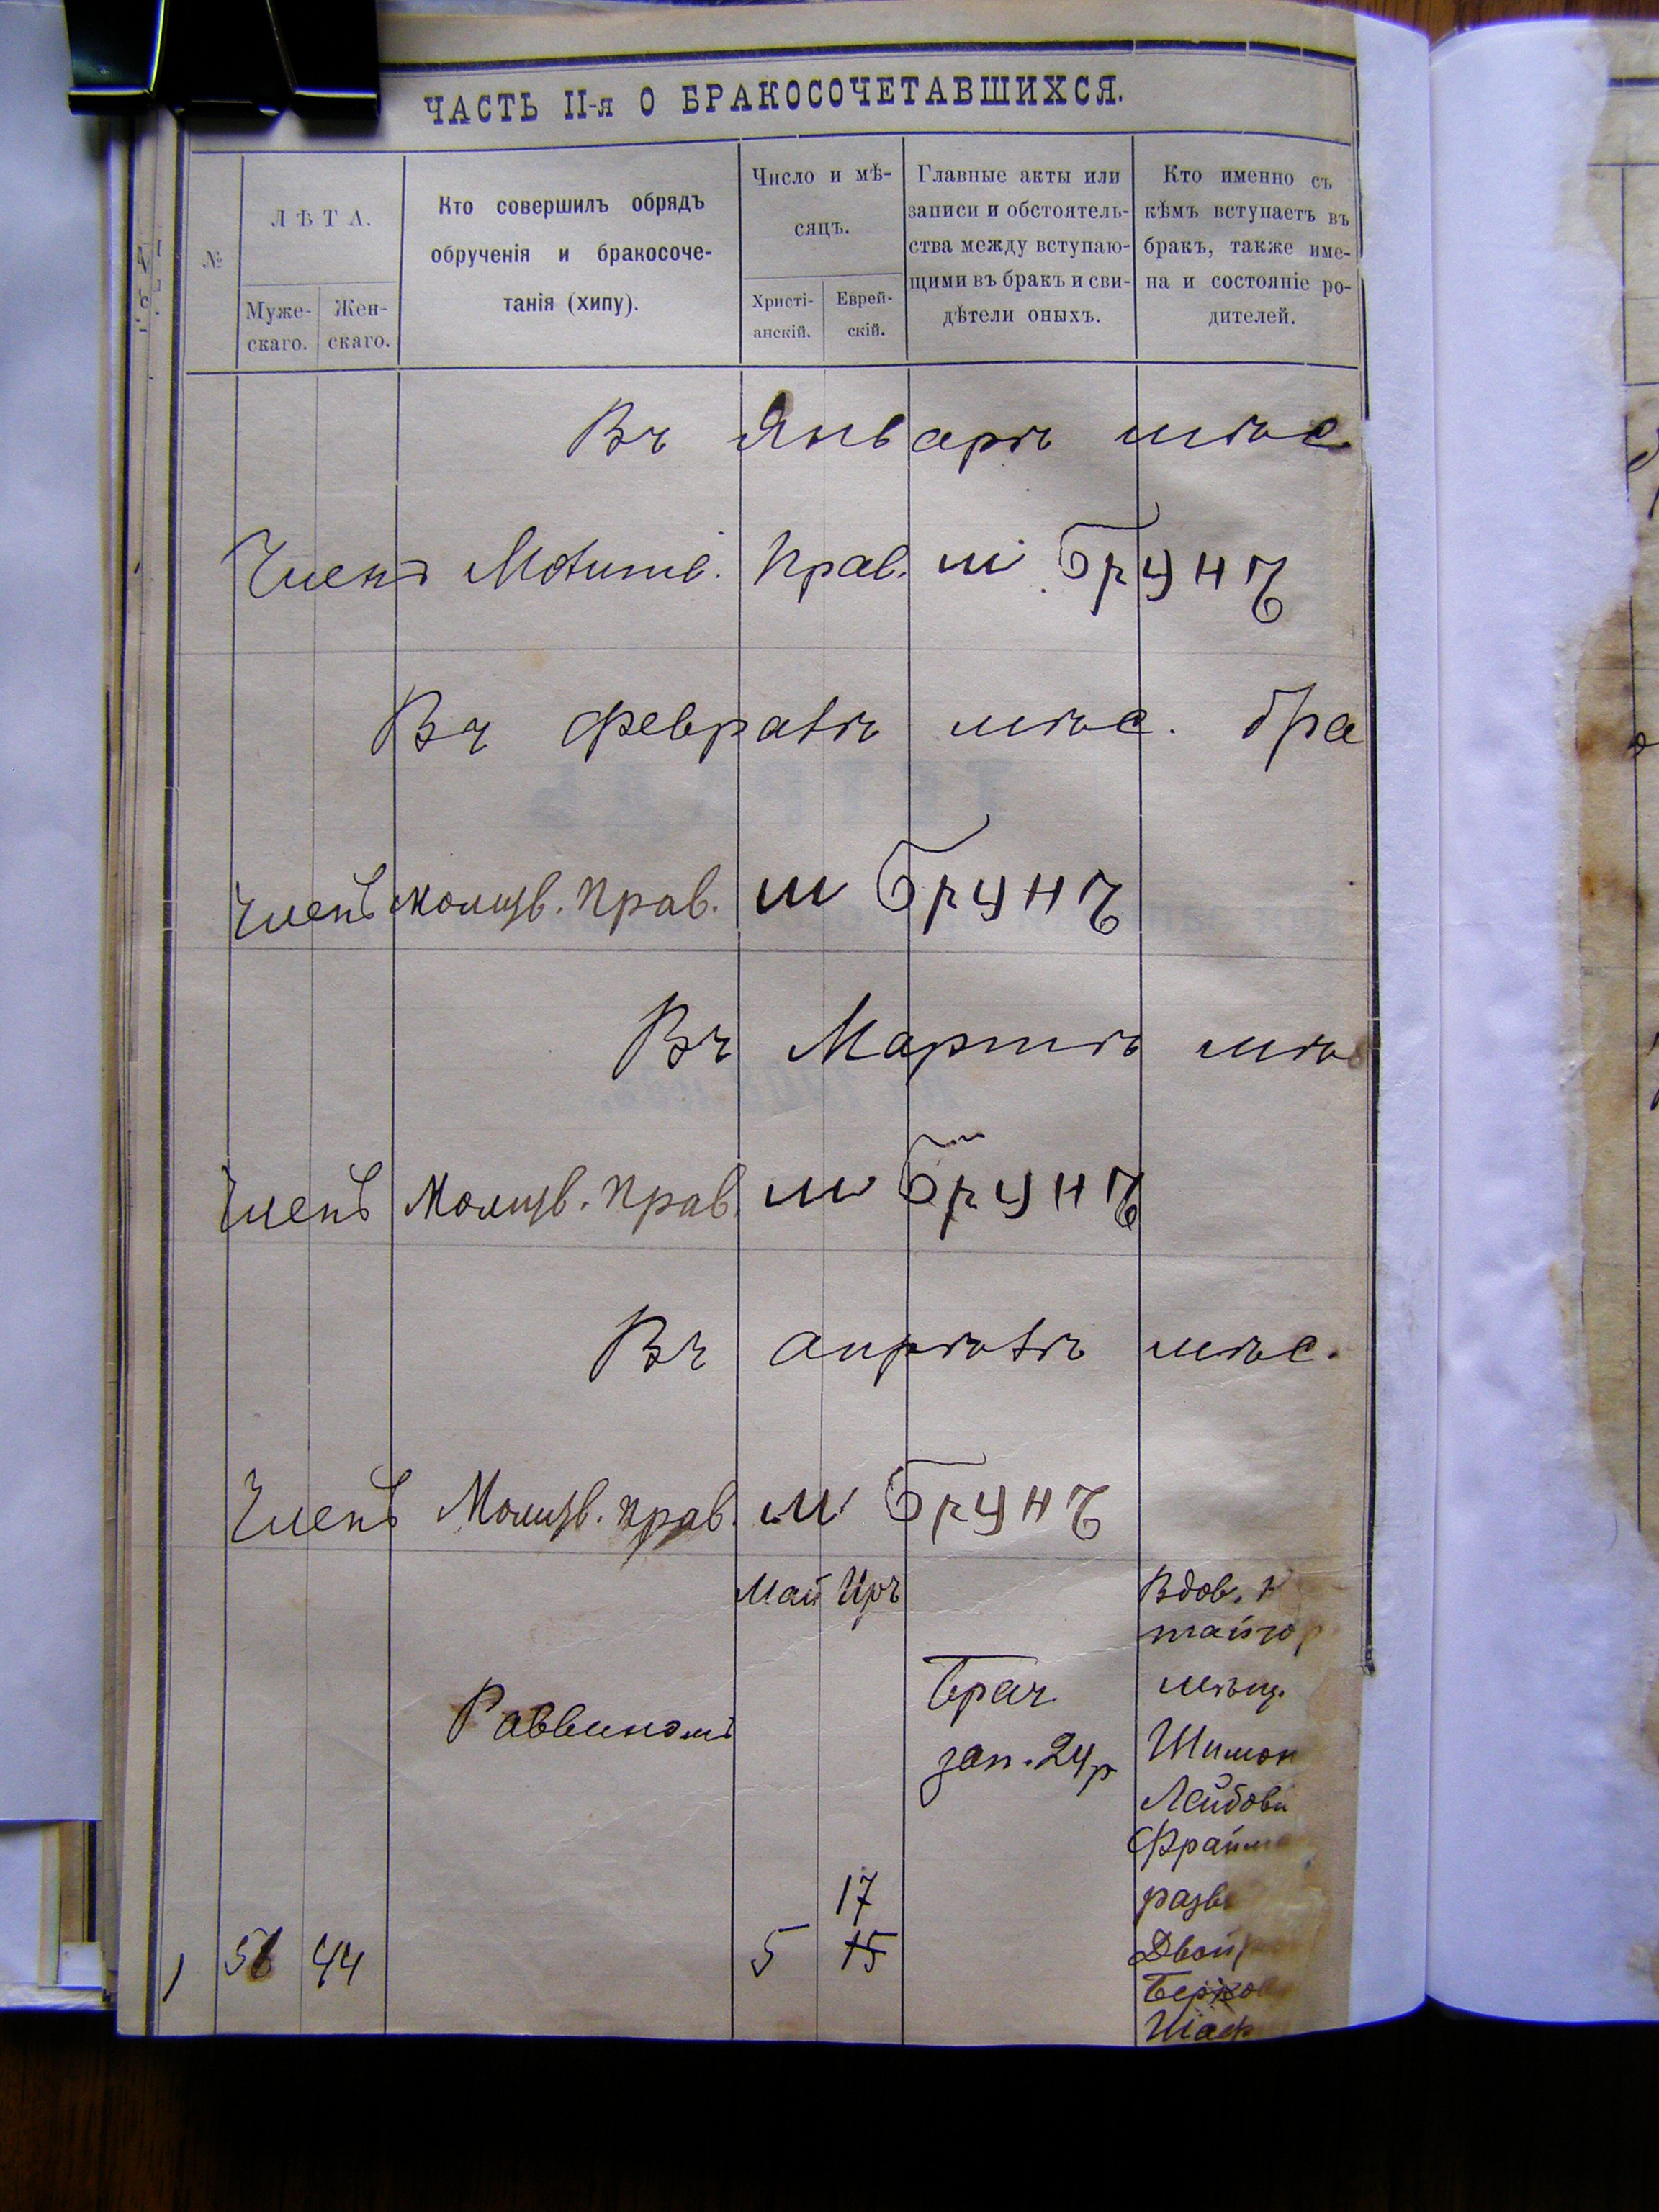 ЧАСТЬ II-я О БРАКОСОЧЕТАВШИХСЯ.
№
ЛѢТА.
Муже-
скаго.
Жен-
скаго.
Кто совершилъ обрядъ
обрученія и бракосоче-
танія (хипу).
Число и мѣ-
сяцъ.
Христі-
анскій.
Еврей-
скій.
Главные акты или
записи и обстоятель-
ства между вступаю-
щими въ бракъ и сви-
дѣтели оныхъ.
Кто именно съ
кѣмъ вступаетъ въ
бракъ, также име-
на и состояніе ро-
дителей.
Въ Январѣ мѣс
Членъ Молитв. Прав. Ш Брунъ
Въ Февралѣ мѣс. бра
Членъ молитв. Прав. Ш Брунъ
Въ Мартѣ мѣс
Членъ Молитв. Прав. Ш Брунъ
Въ апрѣлѣ мѣс.
Членъ Молитв. Прав. Ш Брунъ
Май Иръ
Вдов.
мѣщ.
Раввиномъ
Брач.
зап. 24 р
Шимон
Лейбови
Фрайм
17
разв
1 44 5 15
Двой
Берков
Шаф